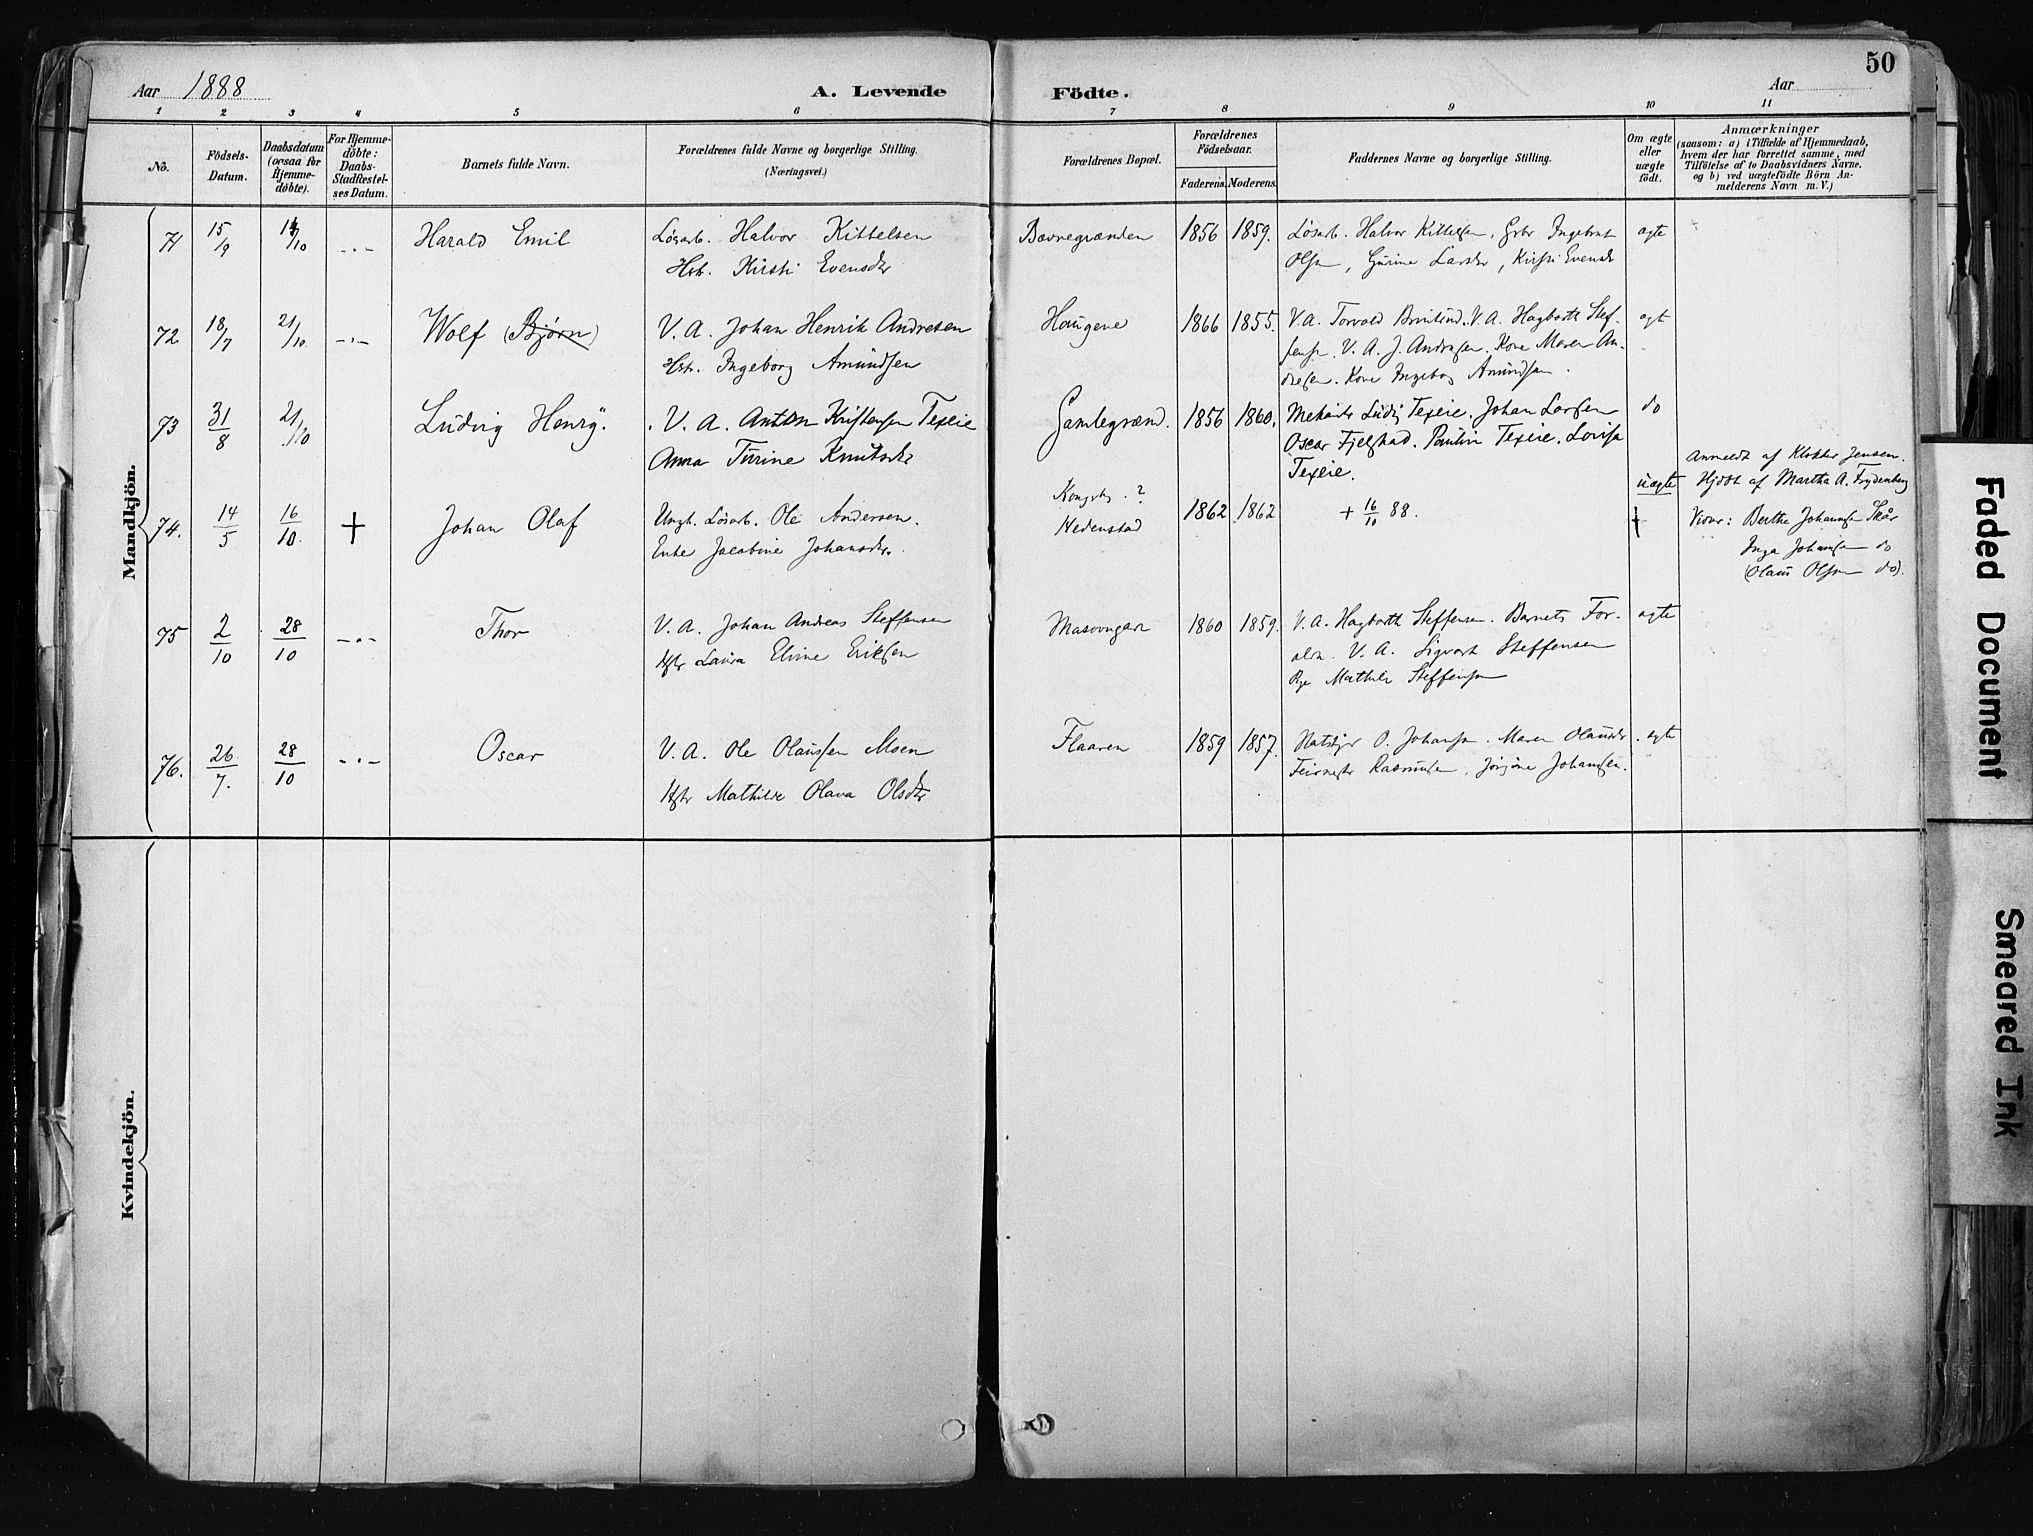 50
Aar 1888
A. Levende Födte.
Aar
1 2 3 4 5 6 7 8 9 10 11
No.
Födsels-
Datum.
Daabsdatum
(ogsaa for
Hjemme-
döbte).
For Hjemme-
döbte:
Daabs-
Stadfæstel-
ses Datum.
Barnets fulde Navn.
Forældrenes fulde Navne og borgerlige Stilling.
(Næringsvei.)
Forældrenes Bopæl.
Forældrenes
Födselsaar.
Faderens. Moderens.
Faddernes Navne og borgerlige Stilling.
Om ægte
eller
uægte
födt.
Anmærkninger
(saasom: a) i Tilfælde af Hjemmedaab,
hvem der har forrettet samme, med
Tilföielse af to Daabsvidners Navne.
og b) ved uægtefödte Börn An-
melderens Navn m. V.)
Mandkjön.
71 15/9 14/10 -"- Harald Emil
Løsarb. Halvor Kittelsen
Hst. Kirsti Evensdtr
Bavnegrænden 1856 1859.
Løsarb. Halvor Kittelsen, Gbr Ingebret
Olsen, Gurine Larsdtr, Kirsti Evensdtr
ægte
72 18/7 21/10. -"- Wolf (Bjørn)
V. A. Johan Henrik Andresen
Hst. Ingeborg Amundsen
Haugene 1866 1855.
V. A. Torvald V. A. Hagbarth Stef-
fensen. V. A. J. Andresen. Kone Maren An-
dresen. Kone Ingeborg Amundsen.
ægt
73 31/8 21/10 Ludvig Henry.
V. A. Anton Kristensen Texeie
Anna Turine Knutsdtr
Gamlegrænd. 1856 1860.
Ludv Texeie. Johan Larsen
Oscar Fjelstad. Pauline Texeie. Lovise
Texeie.
do
74. 14/5 16/10 + Johan Olaf
Ungk. Løsarb. Ole Andersen.
Enke Jacobine Johansdtr.
Kongsbg. ?
Hedenstad 1862 1862
+ 16/10 88.
uægte
+
Anmeldt af Klokker Jensen.
Hjdbt af Martha A. Frydenberg
Vidner: Berthe Johannesen Skår
Inga Johansen do
(Olaus Olsen do).
75 2/10 28/10 -"- Thor
V. A. Johan Andreas Steffensen
Hstr Laura Elvine Eriksen
Masovngaen 1860 1859.
V. A. Hagbarth Steffensen. Barnets For-
ældr. V. A. Sigvart Steffensen
Pge Mathilde Steffensen
ægte
76. 26/7. 28/10 -"- Oscar
V. A. Ole Olaussen Moen
Hstr Mathilde Olava Olsdtr
Flaaren 1859 1857.
O. Johansen. Maren Olausdtr.
Rasmussen, Jørgine Johansen.
ægte
Kvindekjön.
Faded Document
Smeared Ink